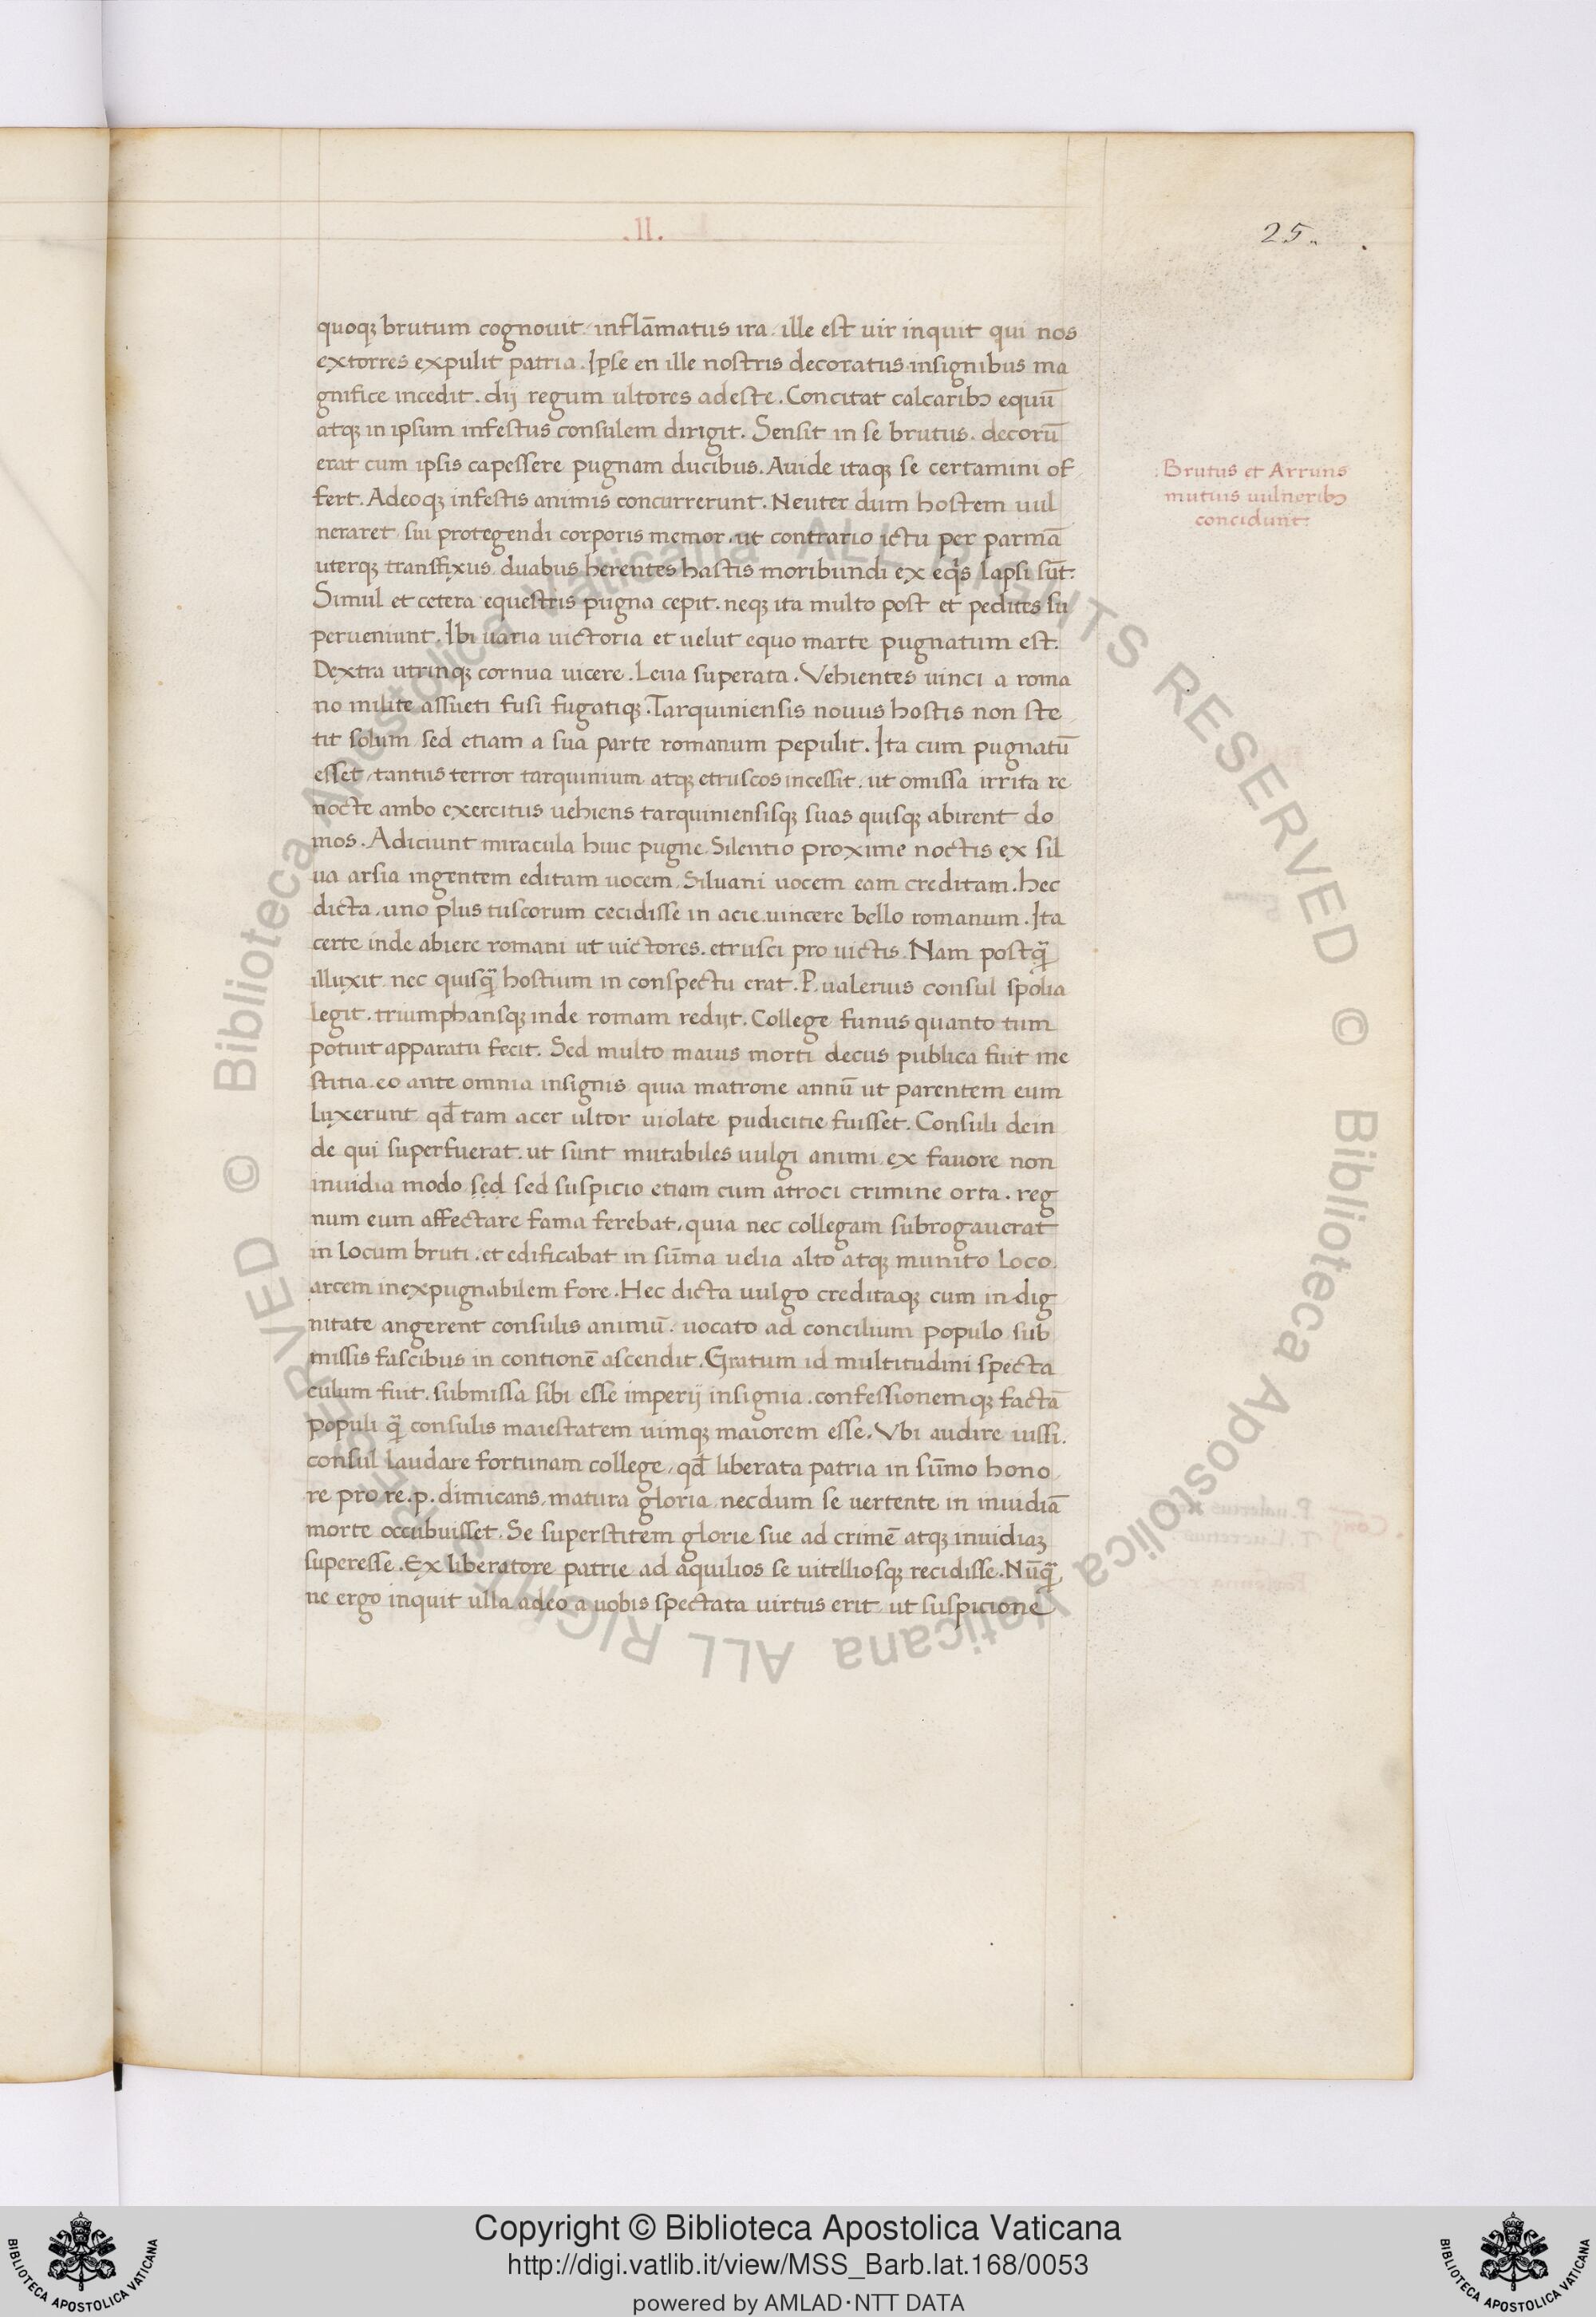 .II.
25.
quoqꝫ brutum cognouit. inflāmatus ira. ille est uir inquit qui nos
extorres expulit patria. Ipse en ille nostris decoratus insignibus ma
gnifice incedit. dij regum ultores adeste. Concitat calcaribꝫ equū
atqꝫ in ipsum infestus consulem dirigit. Sensit in se brutus. decorū
erat cum ipsis capessere pugnam ducibus. Auide itaqꝫ se certamini of
fert. Adeoqꝫ infestis animis concurrerunt. Neuter dum hostem uul
neraret sui protegendi corporis memor. ut contrario ictu per parmā
uterqꝫ transfixus duabus herentes hastis moribundi ex eq̄s lapsi sūt.
Simul et cetera equestris pugna cepit. neqꝫ ita multo post et pedites su
perueniunt. Ibi uaria uictoria et uelut equo marte pugnatum est.
Dextra utrinqꝫ cornua uicere. Leua superata. Vehientes uinci a roma
no milite assueti fusi fugatiqꝫ. Tarquiniensis nouus hostis non ste
tit solum sed etiam a sua parte romanum pepulit. Ita cum pugnatū
esset, tantus terror tarquinium atqꝫ etruscos incessit. ut omissa irrita re
nocte ambo exercitus uehiens tarquiniensisqꝫ suas quisqꝫ abirent do
mos. Adiciunt miracula huic pugne. Silentio proxime noctis ex sil
ua arsia ingentem editam uocem. Siluani uocem eam creditam. hec
dicta. uno plus tuscorum cecidisse in acie. uincere bello romanum. Ita
certe inde abiere romani ut uictores. etrusci pro uictis. Nam postq̄
illuxit nec quisq̄ hostium in conspectu erat. P. ualerius consul spolia
legit. triumphansqꝫ inde romam redijt. College funus quanto tum
potuit apparatu fecit. Sed multo maius morti decus publica fuit me
stitia. eo ante omnia insignis quia matrone annū ut parentem eum
luxerunt qđ tam acer ultor uiolate pudicitie fuisset. Consuli dein
de qui superfuerat. ut sunt mutabiles uulgi animi ex fauore non
inuidia modo sed sed suspicio etiam cum atroci crimine orta. reg
num eum affectare fama ferebat, quia nec collegam subrogauerat
in locum bruti. et edificabat in sūma uelia alto atqꝫ munito loco
arcem inexpugnabilem fore. Hec dicta uulgo creditaqꝫ cum in dig
nitate angerent consulis animū. uocato ad concilium populo sub
missis fascibus in contionē ascendit. Gratum id multitudini specta
culum fuit. submissa sibi esse imperij insignia. confessionemqꝫ factā
populi q̄ consulis maiestatem uimqꝫ maiorem esse. Vbi audire iussi.
consul laudare fortunam college, qđ liberata patria in sūmo hono
re pro re. p. dimicans, matura gloria necdum se uertente in inuidiā
morte occubuisset. Se superstitem glorie sue ad crimē atqꝫ inuidiaꝫ
superesse. Ex liberatore patrie ad aquilios se uitelliosqꝫ recidisse. Nūq̄
ne ergo inquit ulla adeo a uobis spectata uirtus erit ut suspicione
.Brutus et Arruns
mutuis uulneribꝫ
concidunt.
© Biblioteca Apostolica Vaticana ALL RIGHTS RESERVED © Biblioteca Apostolica Vaticana ALL RIGHTS RESERVED
Copyright © Biblioteca Apostolica Vaticana
http://digi.vatlib.it/view/MSS_Barb.lat.168/0053
powered by AMLAD·NTT DATA
BIBLIOTECA APOSTOLICA VATICANA
BIBLIOTECA APOSTOLICA VATICANA